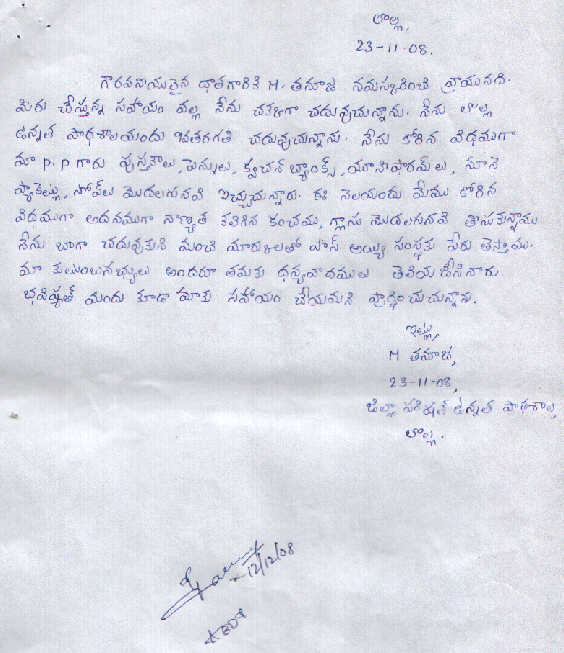 లొల్ల,
23-11-08.
గౌరవనీయులైన దాతగారికి M. తనూజ నమస్కరించి వ్రాయునది.
మీరు చేస్తున్న సహాయం వల్ల నేను చక్కగా చదువుచున్నాను. నేను లొల్ల
ఉన్నత పాఠశాలయందు 10వతరగతి చదువుచున్నాను. నేను కోరిన విధముగా
మా P.P గారు పుస్తకాలు, పెన్నులు, క్వశ్చన్ బ్యాంక్స్, యూనిఫారమ్‌లు, నూనె
ప్యాకెట్లు, సోప్‌లు మొదలగునవి ఇచ్చుచున్నారు. ఈ నెలయందు మేము కోరిన
విధముగా అదనముగా నాణ్యత కలిగిన కంచము, గ్లాసు మొదలగునవి తీసుకున్నాను
నేను బాగా చదువుకుని మంచి మార్కులతో పాస్ అయ్యి సంస్థకు పేరు తెస్తాను.
మా కుటుంబసభ్యులు అందరూ తమకు ధన్యవాదములు తెలియజేసినారు
భవిష్యత్ యందు కూడా మాకు సహాయం చేయమని ప్రార్థించుచున్నాను.
ఇట్లు,
M తనూజ,
23-11-08,
జిల్లా పరిషత్ ఉన్నత పాఠశాల,
లొల్ల.
12/12/08